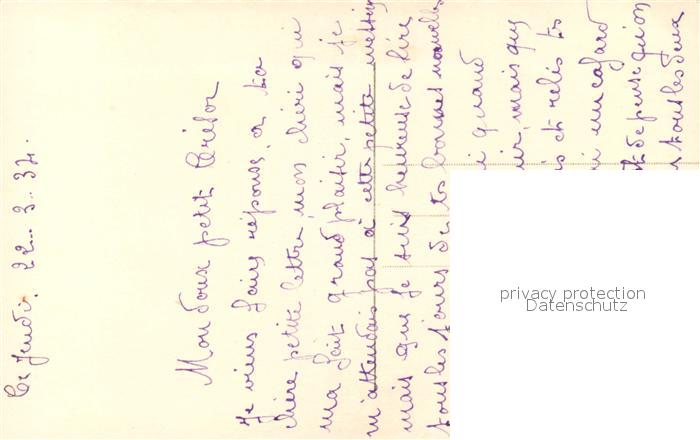 Ce Jeudi. 22.. 3.. 34.
Mon doux petit Trésor
Je viens faire réponse, a ta
chère petite lettre, mon chéri qui
ma fait grand plaisir, mais je
m'attendais pas à cette petite
mais que je suis heureuse de lire
tous les jours de tes bonnes nouvelles
i quand
ir, mais que
is et relis tes
i un cafard
t de pense qu'on
s tous les deux
privacy protection
Datenschutz